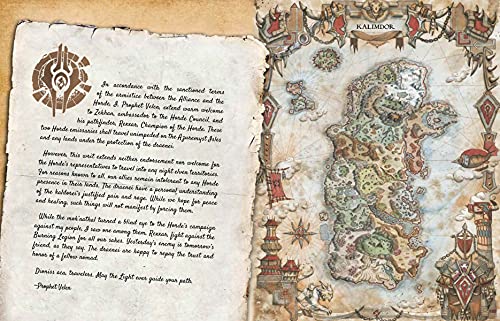 In accordance with the sanctioned terms
of the armistice between the Alliance and the
Horde, I, Prophet Velen, extend warm welcome
to Zekhan, ambassador to the Horde Council, and
his pathfinder, Rexxar, Champion of the Horde. These
two Horde emissaries shall travel unimpeded on the Azuremyst Isles
and any lands under the protection of the draenei.
However, this writ extends neither endorsement nor welcome for
the Horde's representatives to travel into any night elven territories.
For reasons known to all, our allies remain intolerant to any Horde
presence in their lands. The draenei have a personal understanding
of the kaldorei's justified pain and rage. While we hope for peace
and healing, such things will not manifest by forcing them.
While the mok'nathal turned a blind eye to the Horde's campaign
against my people, I saw one among them, Rexxar, fight against the
Burning Legion for all our sakes. Yesterday's enemy is tomorrow's
friend, as they say. The draenei are happy to repay the trust and
honor of a fellow nomad.
Dioniss aca, travelers. May the Light ever guide your path.
~Prophet Velen
KALIMDOR